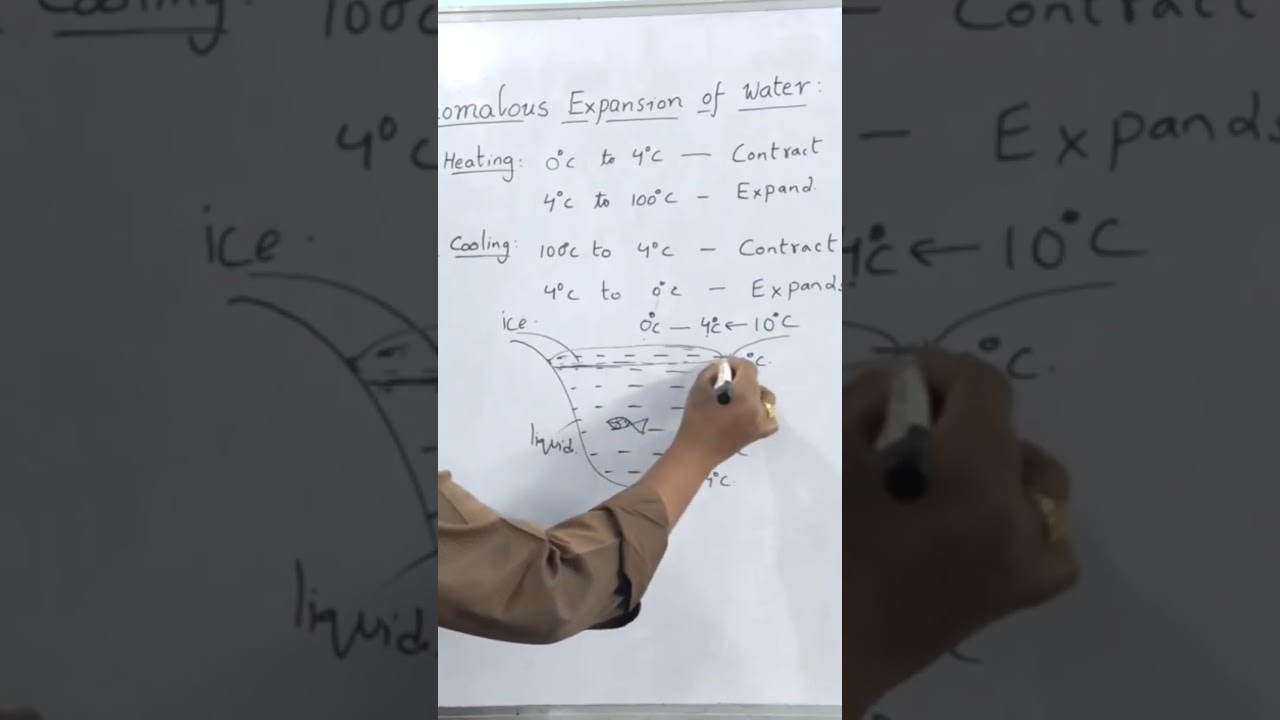 omalous Expansion of Water:
Heating: 0°C to 4°C — Contract
4°C to 100°C – Expand.
Cooling: 100°C to 4°C – Contract
4°C to 0°C – Expands
ice.
0°C — 4°C ← 10°C
°C.
liquid.
4°C.